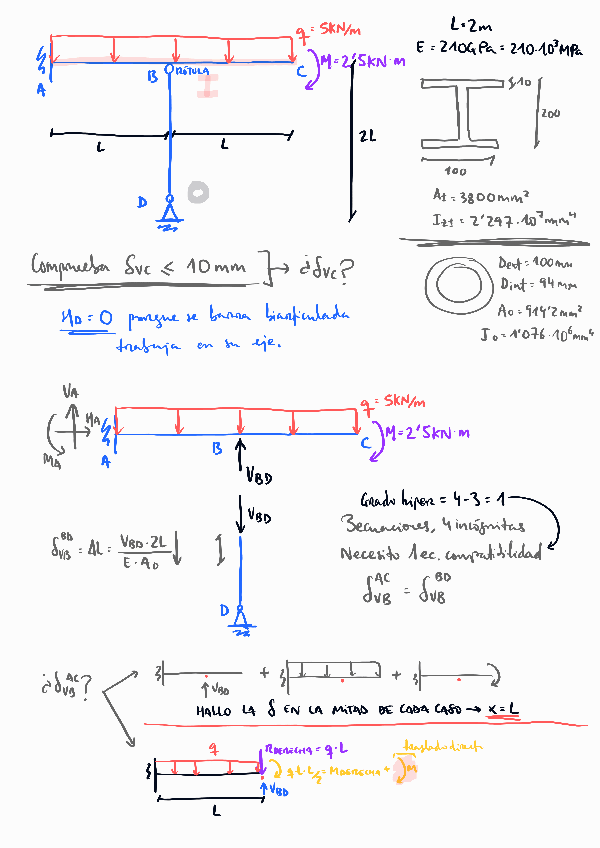 q = 5KN/m
A
B
RÓTULA
C
M = 2'5KN·m
L
L
2L
D
L = 2m
E = 210GPa = 210·10³MPa
10
200
100
At = 3800mm²
Izt = 2'297·10⁷mm⁴
Comprueba δVC ≤ 10mm
¿δVC?
Dext = 100mm
Dint = 94mm
A0 = 914'2mm²
I0 = 1'076·10⁶mm⁴
HD = 0 porque se barra biarticulada
trabaja en su eje.
VA
HA
MA
A
B
C
q = 5KN/m
M = 2'5KN·m
VBD
VBD
D
δVB^BD = ΔL = VBD·2L / E·A0
Grado hiper = 4-3 = 1
3 ecuaciones, 4 incógnitas
Necesito 1 ec. compatibilidad
δVB^AC = δVB^BD
¿δVB^AC?
+
+
VBD
HALLO LA δ EN LA MITAD DE CADA CASO → x = L
q
RDERECHA = q·L
q·L·L/2 = MDERECHA +
traslado direct
m
VBD
L